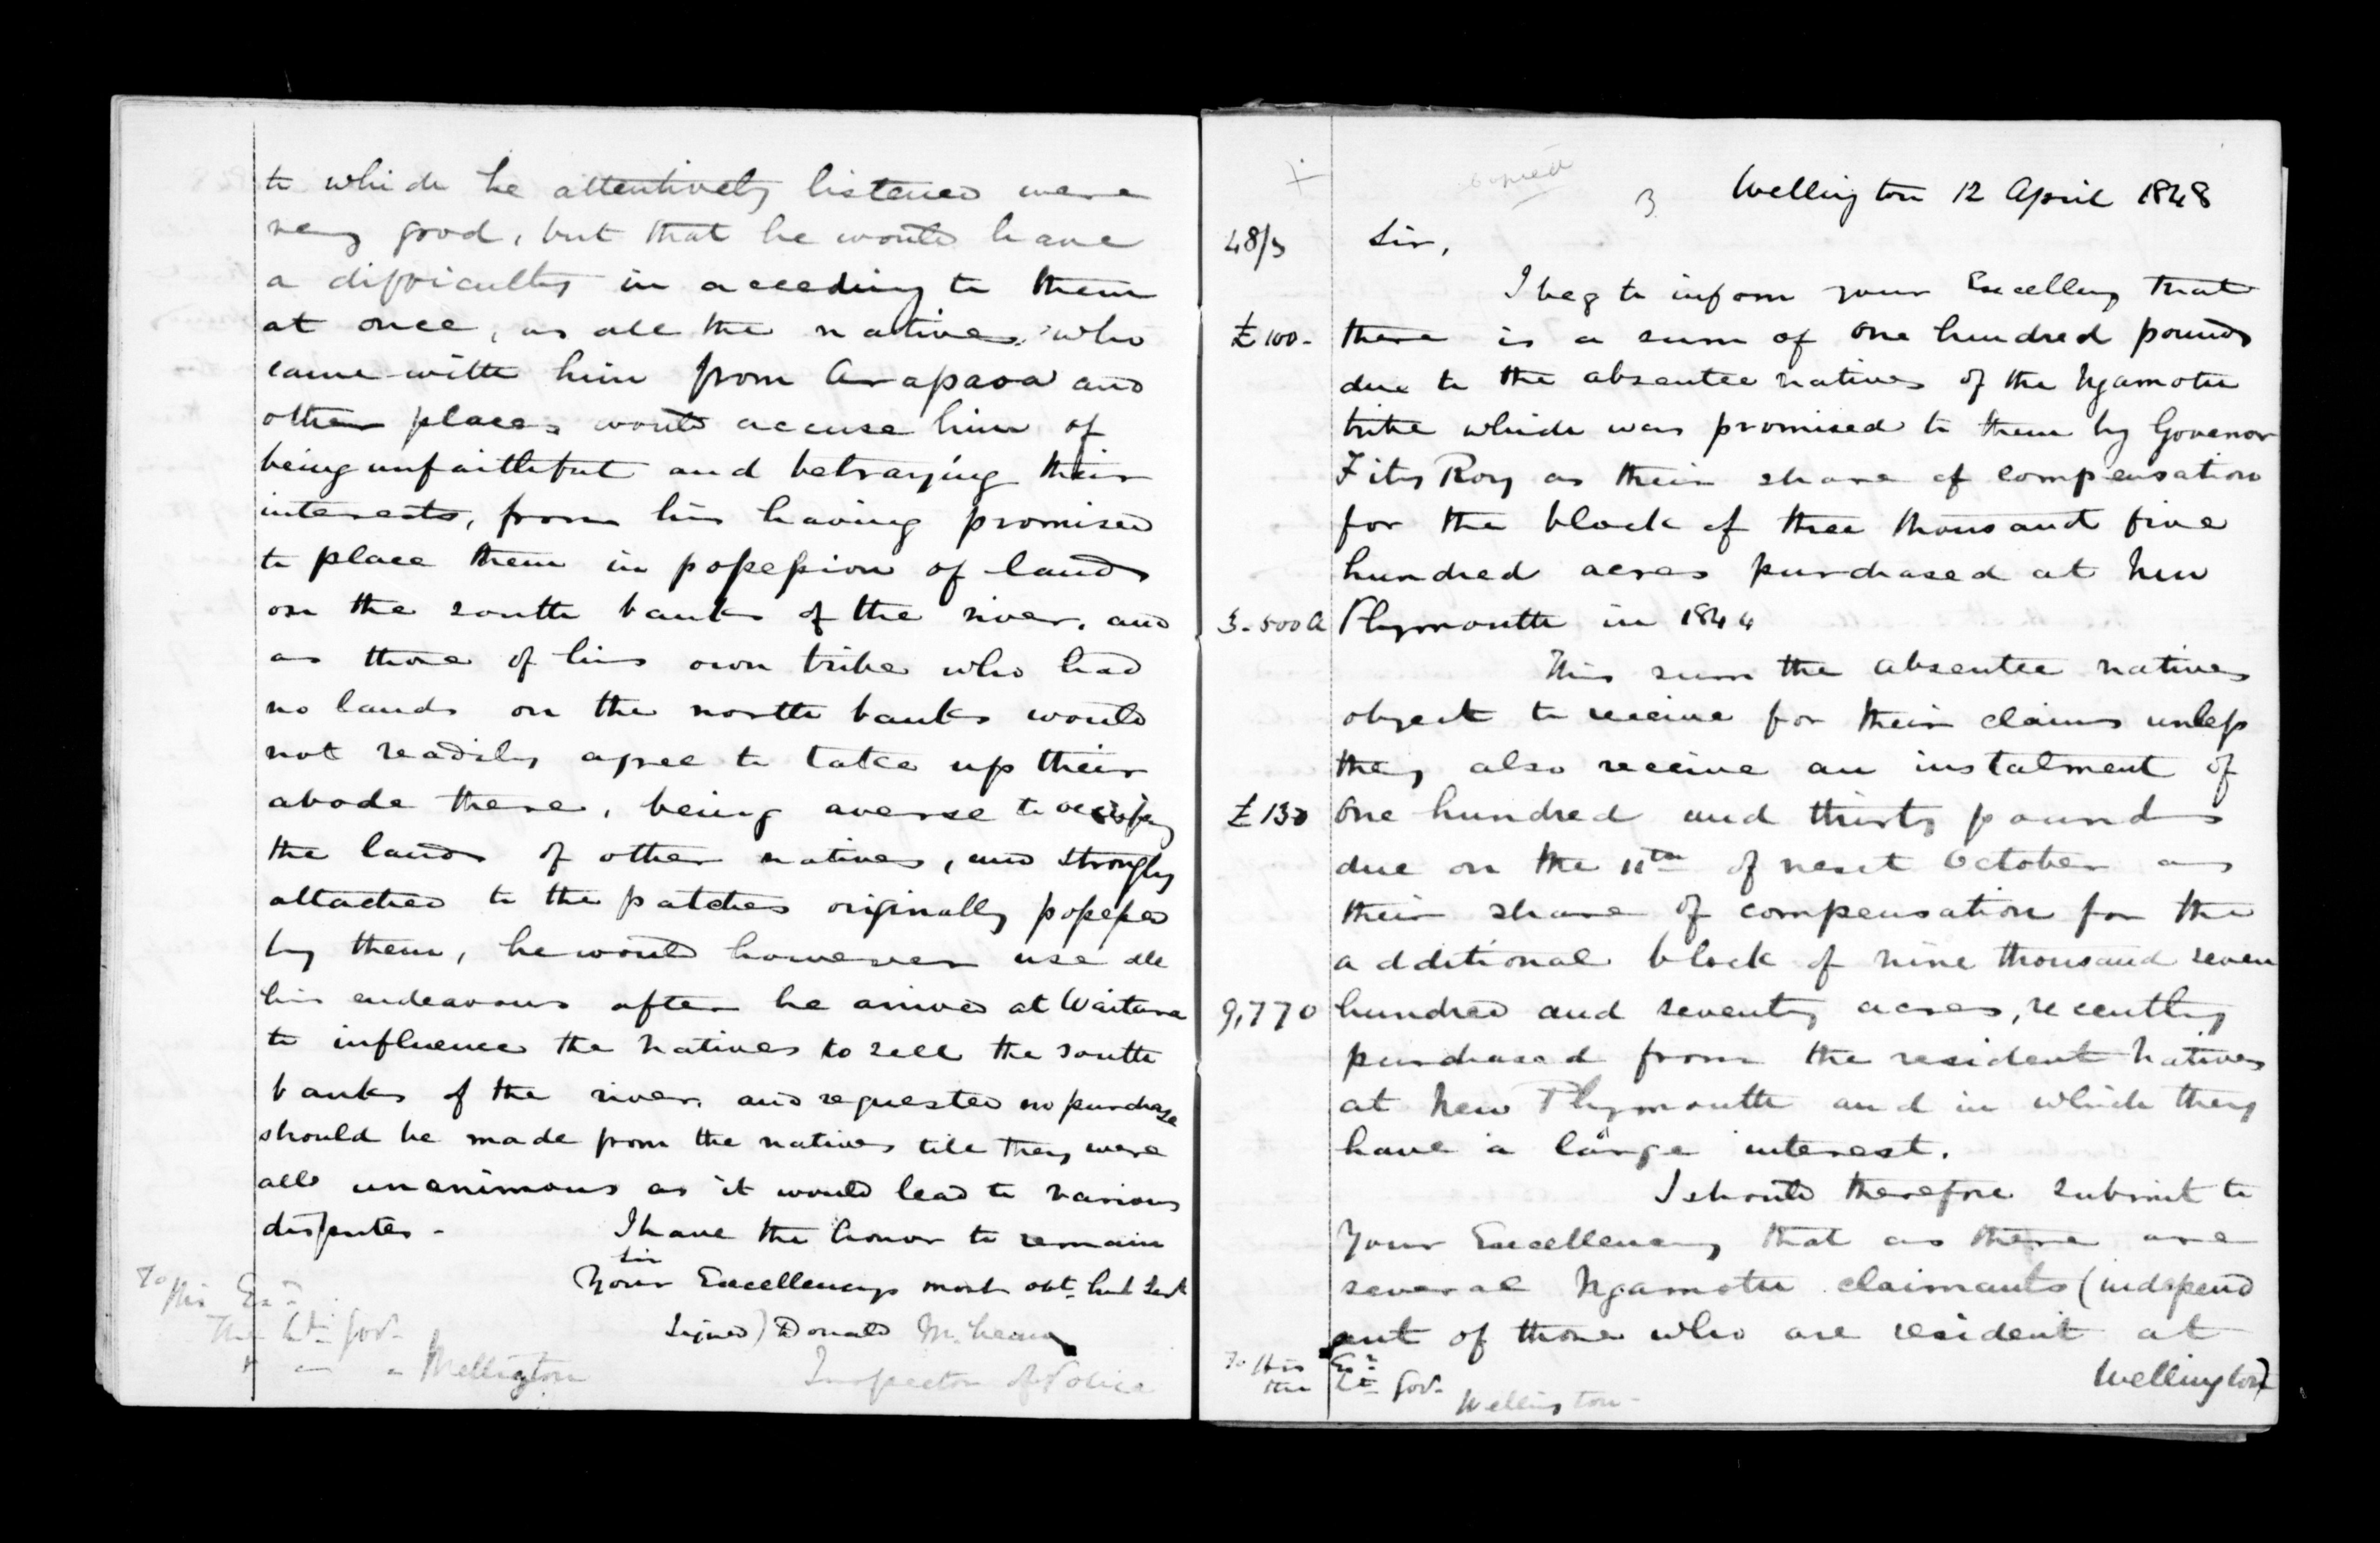 to which he attentively listened were
very good, but that he would have
a difficulty in acceeding to them
at once, as all the natives who
came with him from Arapaoa and
other places would accuse him of
being unfaithful and betraying their
interests, from his having promised
to place them in possession of lands
on the south banks of the river, and
as those of his own tribe who had
no lands on the north banks would
not readily agree to take up their
abode there, being averse to occupy
the lands of other natives, and strongly
attached to the patches originally possessed
by them, he would however use all
his endeavours after he arrives at Waitara
to influence the Natives to sell the south
banks of the river, and requested no purchase
should be made from the natives till they were
all unanimous as it would lead to various
disputes -
I have the honor to remain
Sir
Your Excellencys most obt. hul Servt
Signed) Donald McLean
Inspector of Police
To His Ex
The Lt Gov.
Wellington
copied
3 Wellington 12 April 1848
48/3 Sir,
I beg to inform your Excellency that
£100- there is a sum of One hundred pounds
due to the absentee natives of the Ngamotu
tribe which was promised to them by Govenor
Fitz Roy as their share of compensation
for the block of three thousand five
hundred acres purchased at New
3-500 A Plymouth in 1844
This sum the absentee natives
object to receive for their claims unless
they also receive an instalment of
£130 One hundred and thirty pounds
due on the 11th of next October as
their share of compensation for the
additional block of nine thousand seven
9,770 hundred and seventy acres, recently
purchased from the resident Natives
at New Plymouth and in which they
have a large interest.
I should therefore submit to
Your Excellency that as there are
several Ngamotu claimants (independ
ant of those who are resident at
Wellington)
To His Ex
the Lt Gov.
Wellington-